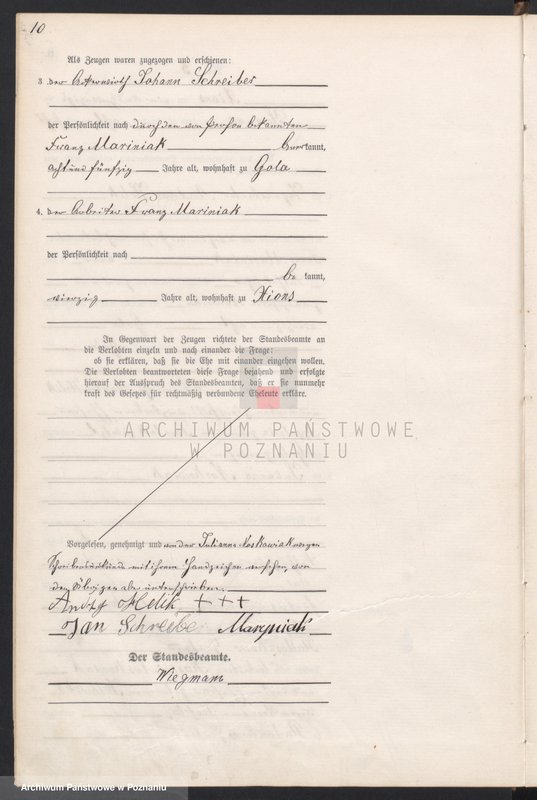 10
Als Zeugen waren zugezogen und erschienen:
3 der Ackerwirth Johann Schreiber
der Persönlichkeit nach durch den von Person bekannten
Franz Mariniak anerkannt,
achtund fünfzig Jahre alt, wohnhaft zu Gola
4. der Arbeiter Franz Mariniak
der Persönlichkeit nach
be kannt,
vierzig Jahre alt, wohnhaft zu Xions
In Gegenwart der Zeugen richtete der Standesbeamte an
die Verlobten einzeln und nach einander die Frage:
ob sie erklären, daß sie die Ehe mit einander eingehen wollen.
Die Verlobten beantworteten diese Frage bejahend und erfolgte
hierauf der Ausspruch des Standesbeamten, daß er sie nunmehr
kraft des Gesetzes für rechtmäßig verbundene Eheleute erkläre.
ARCHIWUM PAŃSTWOWE
W POZNANIU
Vorgelesen, genehmigt und von der Julianna wegen
Schreibensunkunde mit ihrem Handzeichen versehen, von
den Übrigen aber unterschrieben.
+++
Jan Schreiber
Der Standesbeamte.
Wiegmann
Archiwum Państwowe w Poznaniu